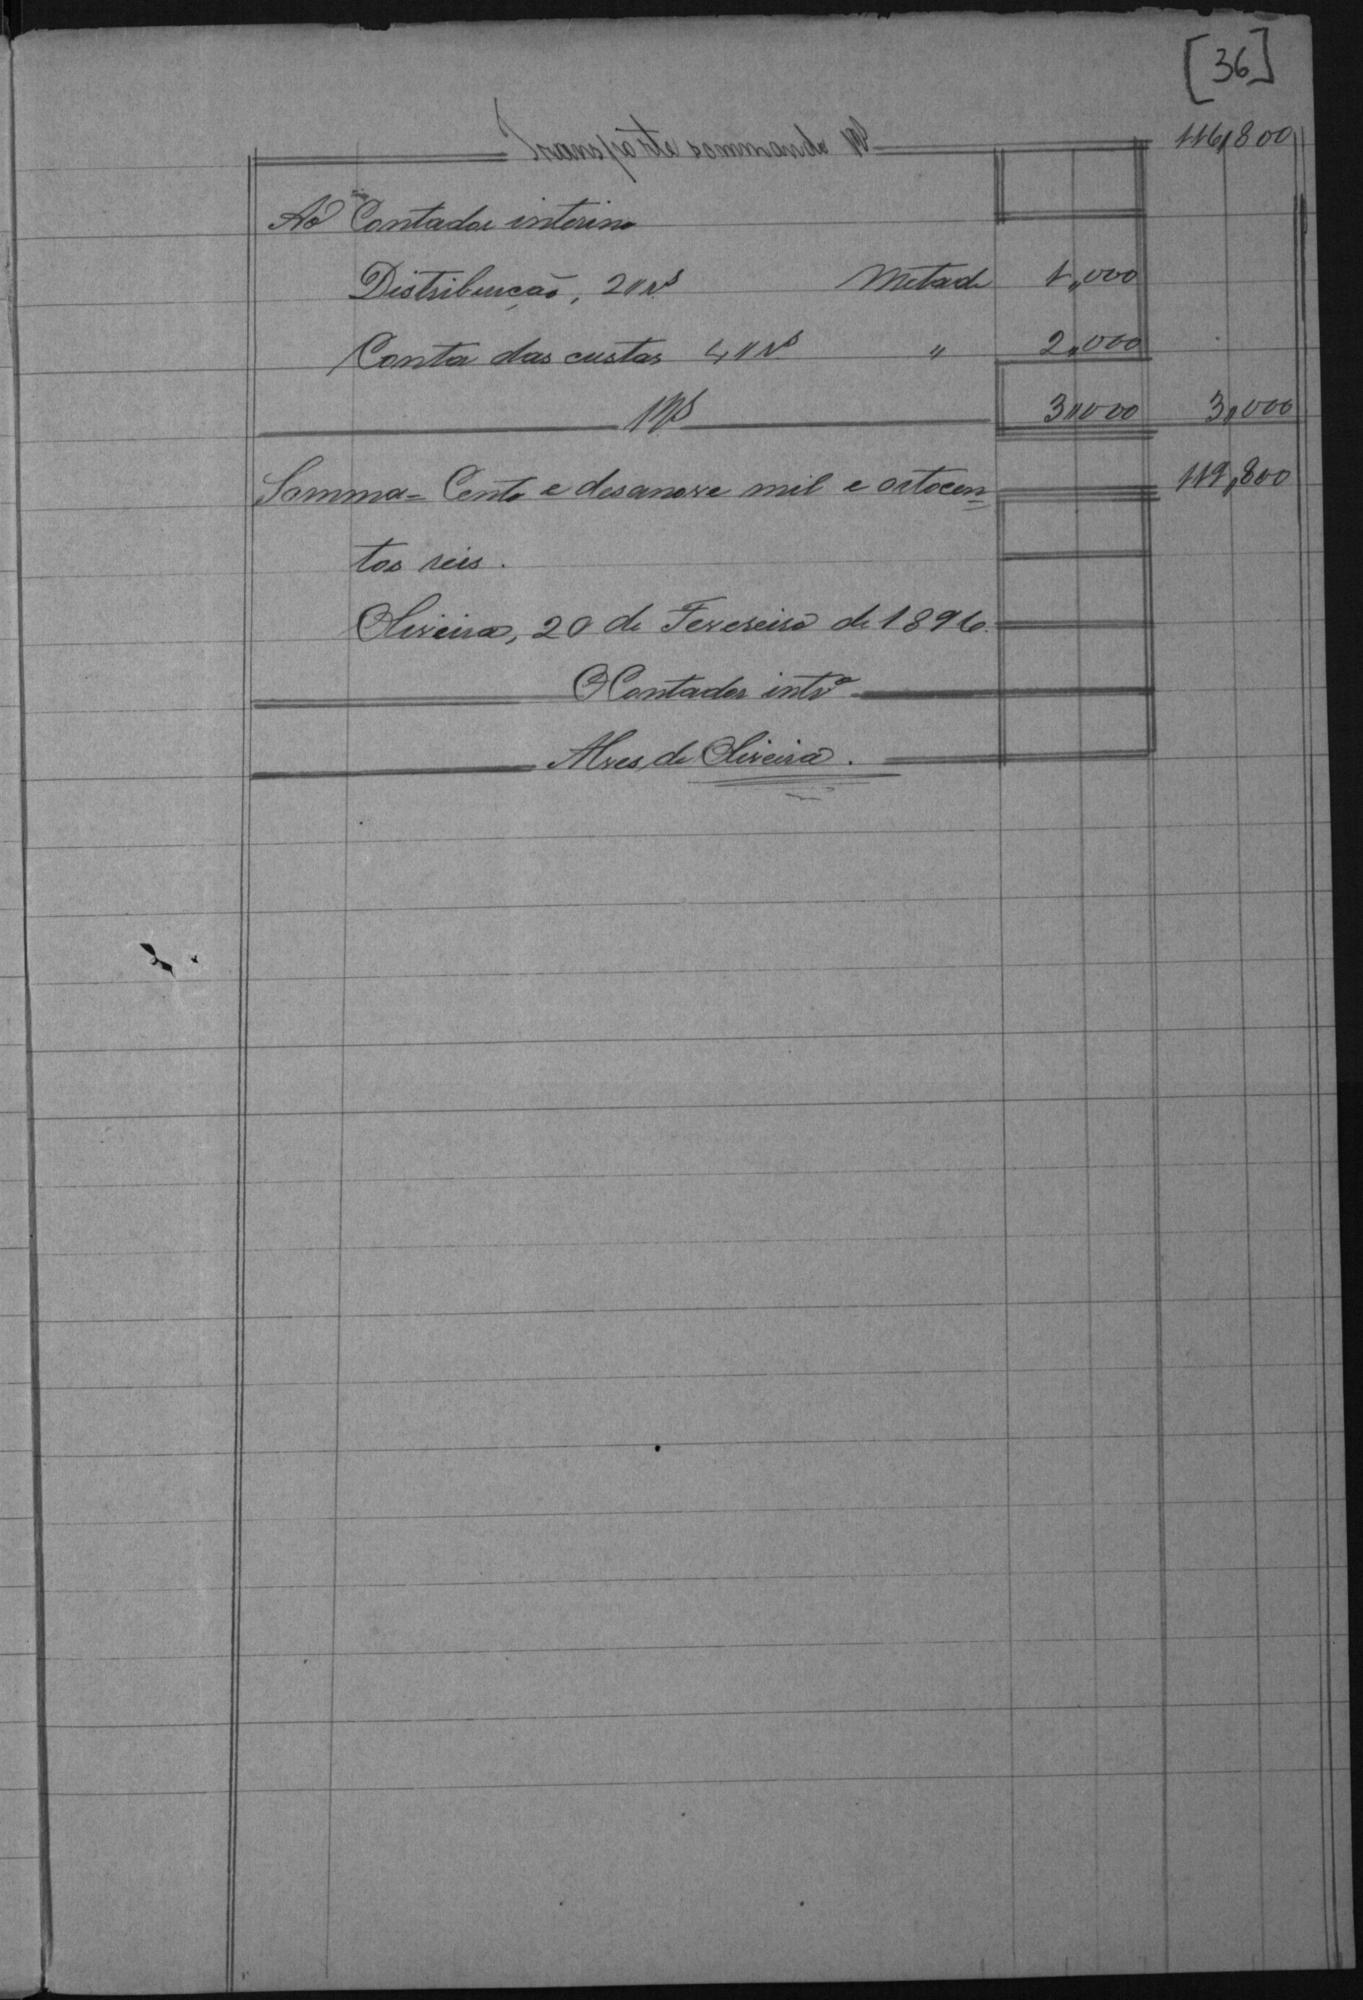 [36]
Transpórte sommando R 116,800
Ao Contador interino
Distribuição, 2"rs Metade 1,,000
Conta das custas 4"rs " 2,,000
Rs 3"000 3,,000
Somma = Cento e desanove mil e oitocen= 119,,800
tos reis.
Oliveira, 20 de Fevereiro de 1896.
O Contador intrº
Alves de Oliveira.